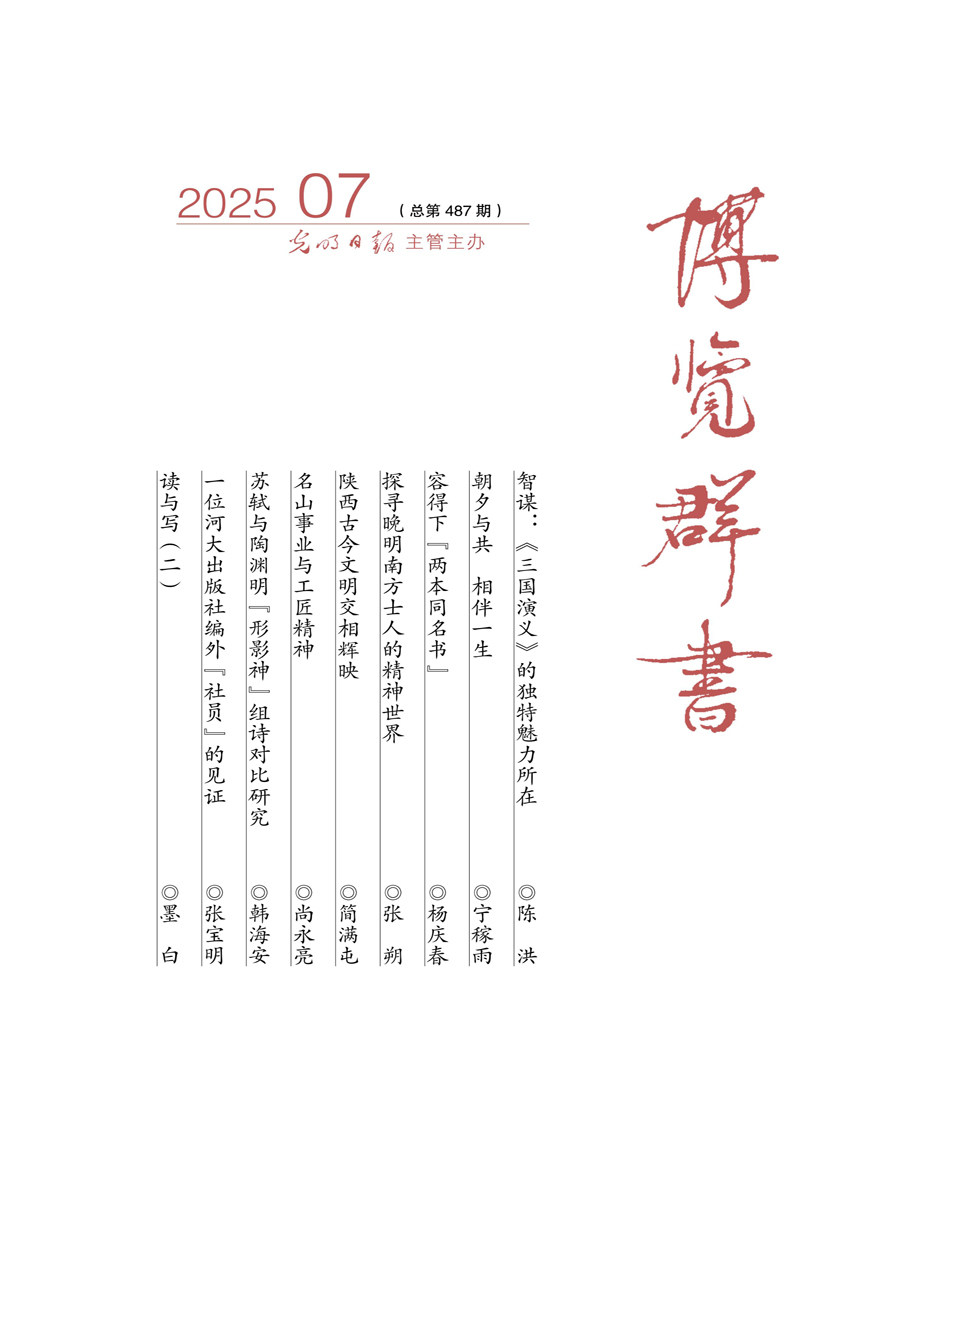 2025 07 （总第 487 期）
光明日报 主管主办
博览群書
智谋：《三国演义》的独特魅力所在 ◎陈　洪
朝夕与共　相伴一生 ◎宁稼雨
容得下『两本同名书』 ◎杨庆春
探寻晚明南方士人的精神世界 ◎张　朔
陕西古今文明交相辉映 ◎简满屯
名山事业与工匠精神 ◎尚永亮
苏轼与陶渊明『形影神』组诗对比研究 ◎韩海安
一位河大出版社编外『社员』的见证 ◎张宝明
读与写（二） ◎墨　白